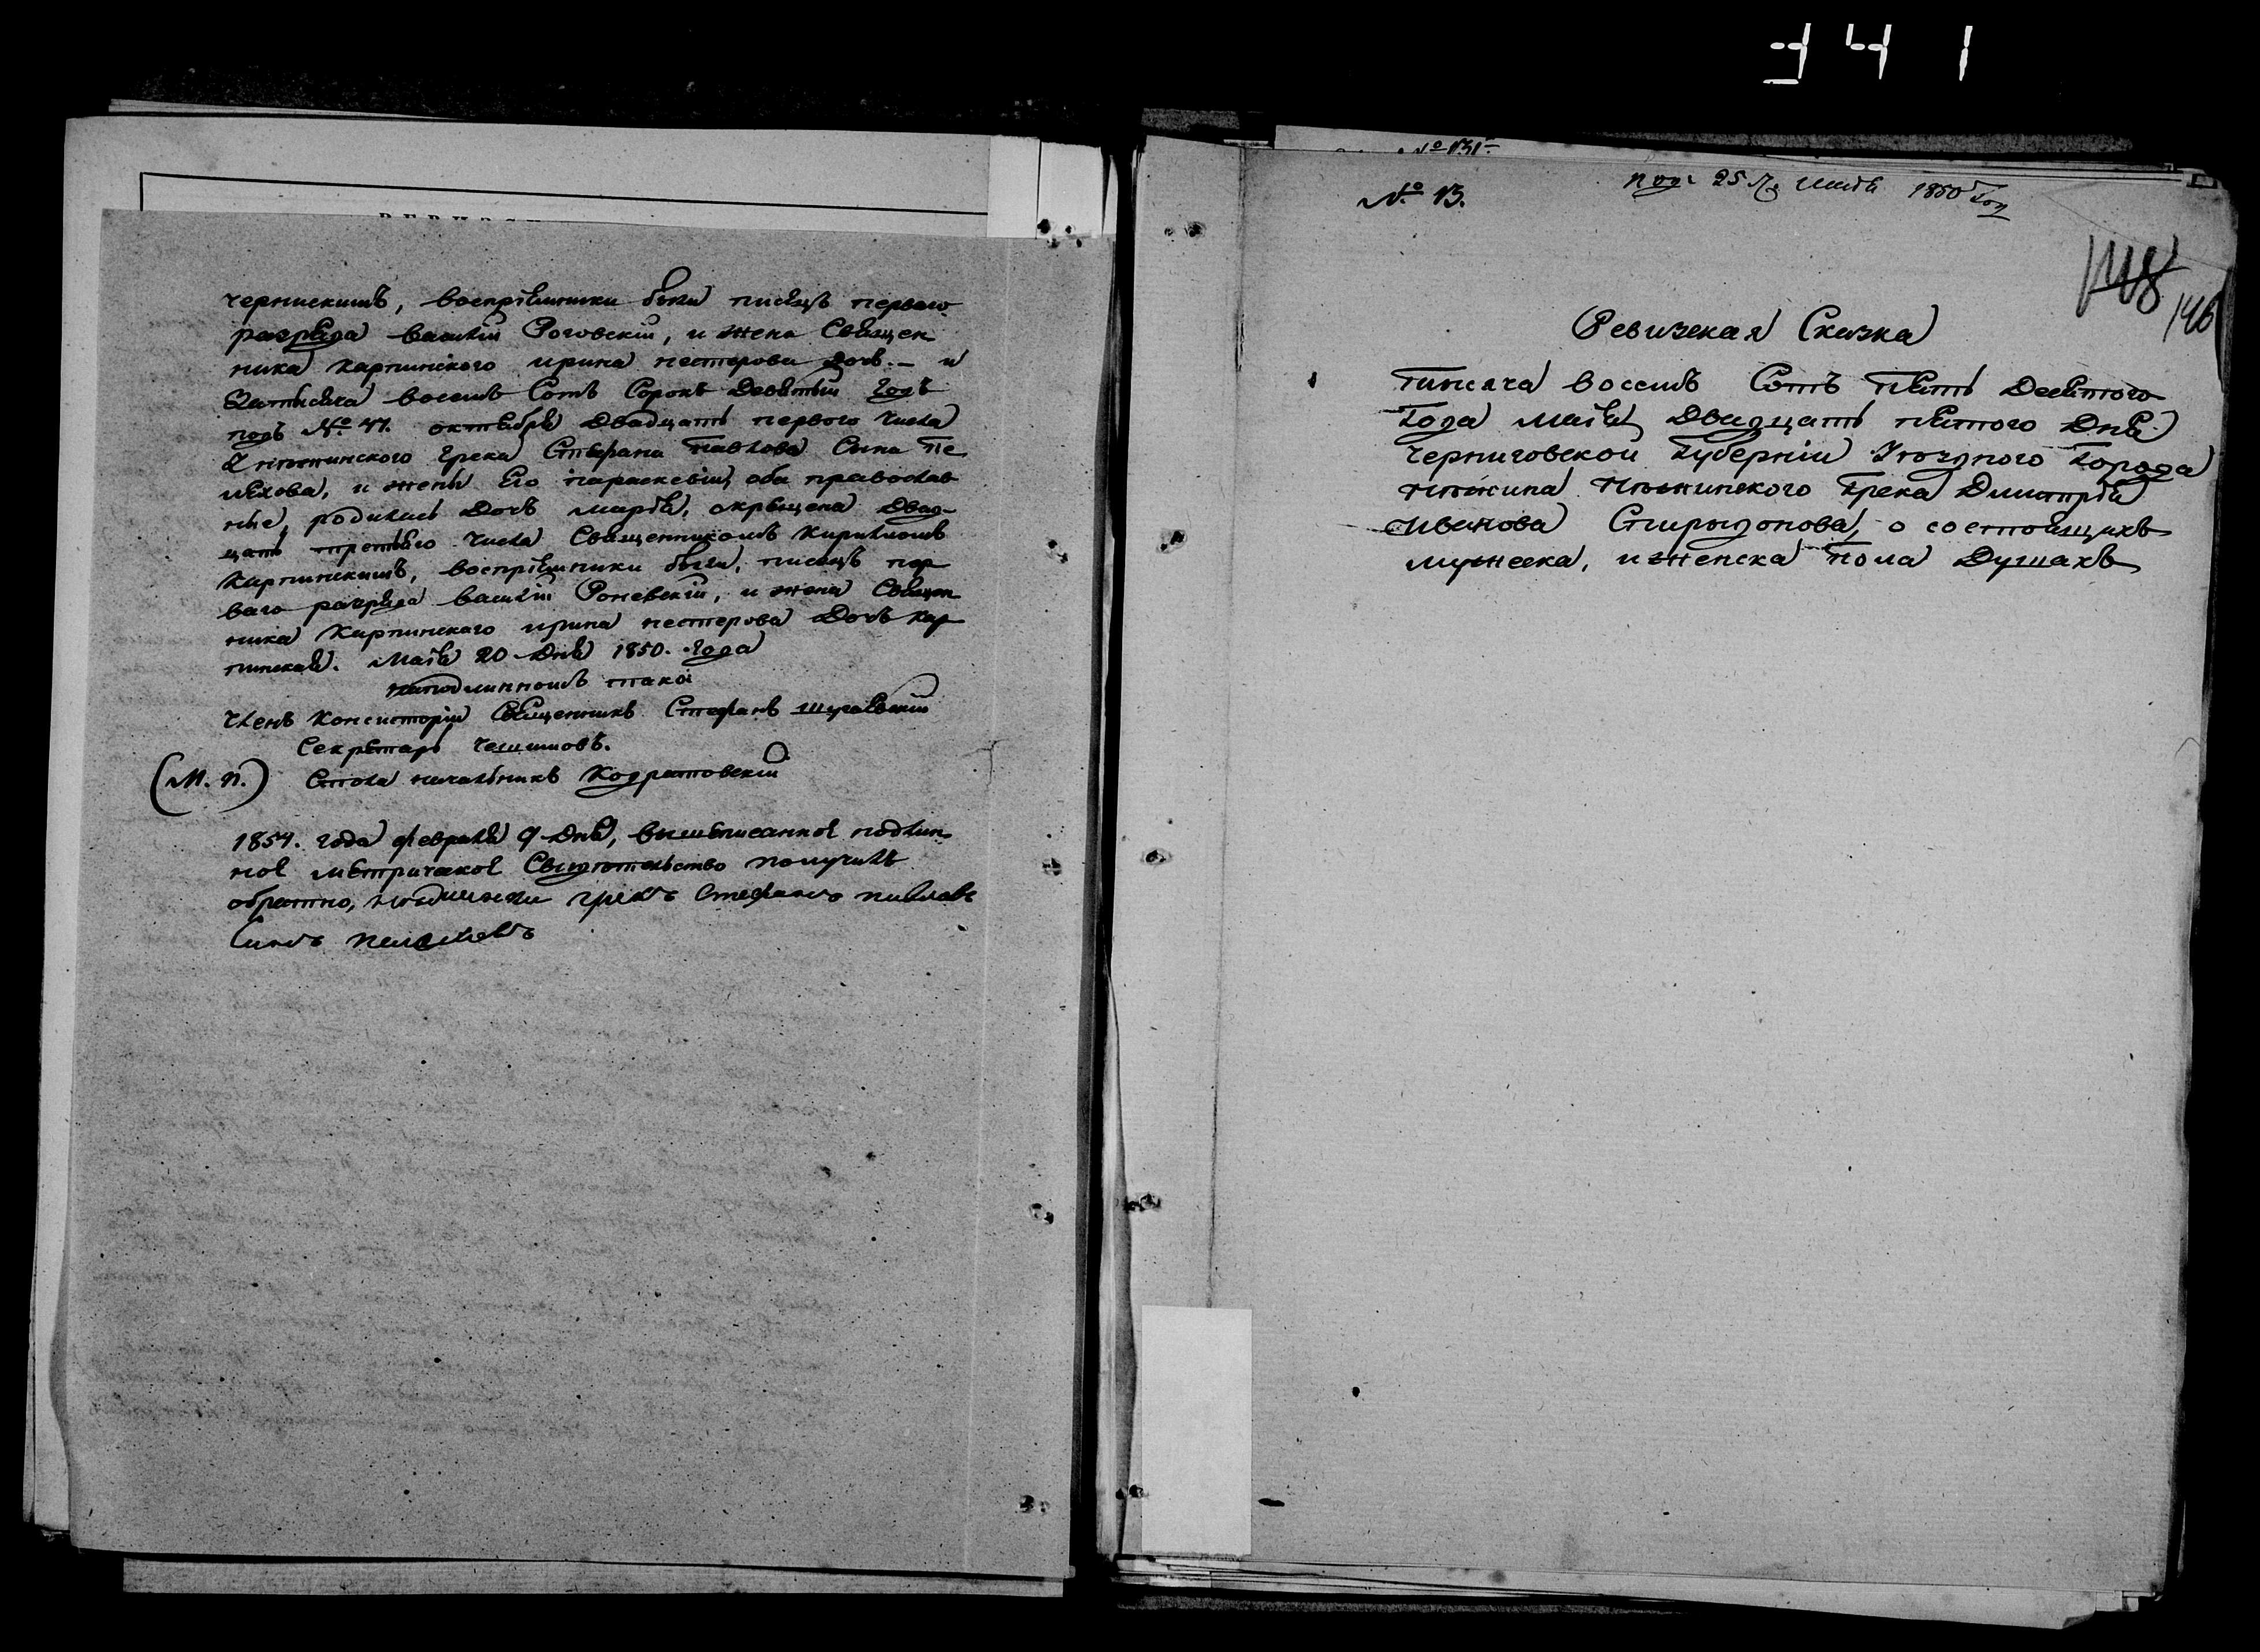 341
РЕВИЗС
чернискимъ, воспріемники были писецъ перваго
разряда Василій Роговскій, и жена Священ
ника Карпинского Ирина Нестерова Дочь. — и
За тысяча восемь Сотъ Сорокъ Девятый Годъ
подъ № 41. октября Двадцать перваго числа
У нѣжинского Грека Стефана Павлова Сына Пе
лехова, и жены Его Параскевіи, оба православ
ные, родилась Дочь Марія, окрещена Двад-
цать третьяго числа Священникомъ Кириломъ
Карпинскимъ, воспріемники были, писецъ пер
ваго разряда Василій Роговскій, и жена Священ
ника Карпинскаго Ирина Нестерова Дочь Кар
пинская. Маія 20 Дня 1850. Года
На подлинномъ тако
Членъ Консисторіи Священникъ Стефанъ
Секретарь
(М. П.) Стола начальникъ Кодратовскій
1854. года февраля 9 Дня, вышеписанное подлин
ное метрическое Свидѣтельство получилъ
обратно, нѣжинскій грекъ Стефанъ Павловъ
Сынъ Пелеховъ
№ 131
№ 13.
25 1850 Год
148
146
Ревизская Сказка
тысяча восемь Сотъ Пять Десятого
Года Маія Двадцать пятого Дня
Черниговской Губерніи Уѣзднаго Города
Нѣжина Нѣжинского Грека Дмитрія
Иванова Спиридонова, о состоящихъ
мужеска, и женска Пола Душахъ